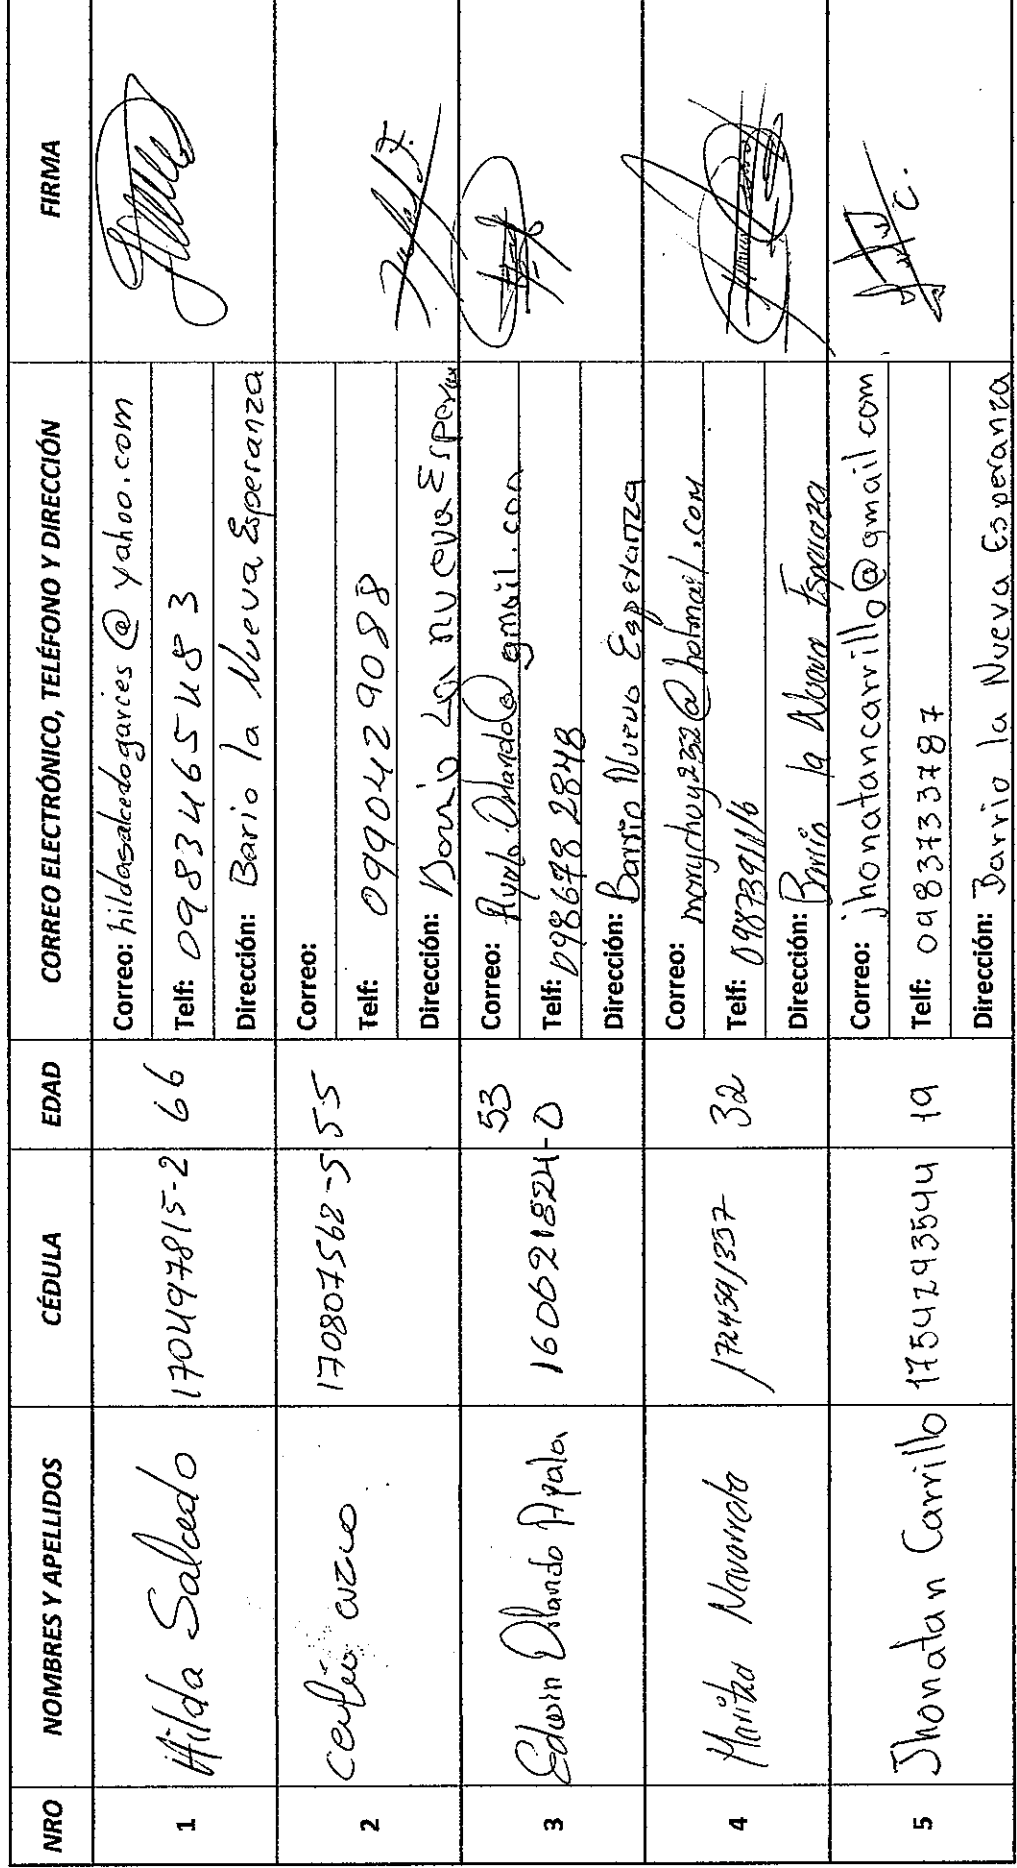 NRO NOMBRES Y APELLIDOS CÉDULA EDAD CORREO ELECTRÓNICO, TELÉFONO Y DIRECCIÓN FIRMA
1 Hilda Salcedo 170497815-2 66
Correo: hildasalcedogarces@yahoo.com
Telf: 0983465483
Dirección: Bario la Nueva Esperanza
2 cuzco 170807562-5 55
Correo:
Telf: 0990429088
Dirección: Barrio La nueva
3 Edwin Orlando Ayala 160621824-0 53
Correo: @gmail.con
Telf: 0986782848
Dirección: Barrio Nueva Esperanza
4 Maritza Navarrete 53
Correo: @hotmail.com
Telf:
Dirección: Barrio la Nueva Esperanza
5 Jhonatan Carrillo 1754293544 19
Correo: jhonatancarrillo@gmail.com
Telf: 0983733787
Dirección: Barrio la Nueva Esperanza